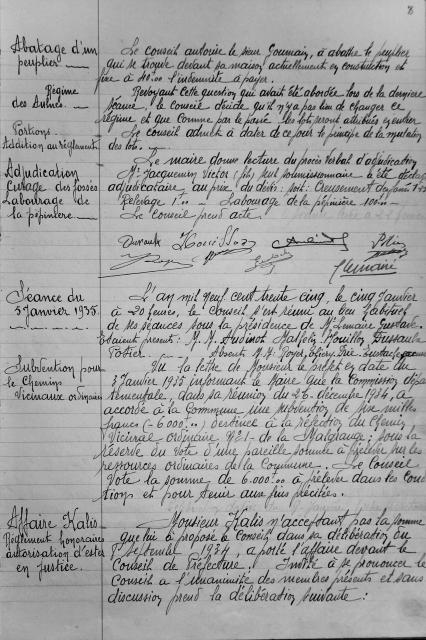 8
Abatage d'un
peuplier
Le conseil autorise le sieur Goumain, à abattre le peuplier
qui se trouve devant sa maison actuellement en construction et
fixe à 40.00 l'indemnité à payer.
Régime
des Aunes.
Revoyant cette question qui avait été abordée lors de la dernière
séance, le Conseil décide qu'il n'y a pas lieu de changer ce
régime et que comme par le passé les lots seront attribués en entier
Portions.
Addition au règlement
Le Conseil admet à dater de ce jour le principe de la mutation
des lots.
Adjudication
Curage des fossés
Labourage de
la pépinière
Le maire donne lecture du procès verbal d'adjudication
Mr Jacquemin Victor seul soumissionnaire a été déclaré
adjudicataire au prix du devis: soit:
Relevage 1.00 Labourage de la pépinière 100.00
Le Conseil prend acte.
Lemaire
Séance du
5 Janvier 1935.
L'an mil neuf cent trente cinq, le cinq Janvier
à 20 heures, le Conseil s'est réuni au lieu habituel
de ses séances sous la présidence de Mr Lemaire Gustave.
Etaient présents: M. M.
Potier. Absents M. M.
Subvention pour
le Chemin
Vicinaux ordinaire
Vu la lettre de Monsieur le préfet en date du
3 Janvier 1935 informant le Maire que la Commission dépar
tementale, dans sa réunion du 26 décembre 1934, a
accordé à la Commune une subvention de six milles
francs (-6000.00) destinée à la réfection du Chemin
Vicinal ordinaire No 1 de la Malgrange: sous la
réserve du vote d'une pareille somme à prélever sur les
ressources ordinaires de la Commune. Le Conseil
Vote la somme de 6.000.00 à prélever dans les condi
tions et pour servir aux fins précitées.
Affaire Kalis.
Règlement honoraires
autorisation d'ester
en justice.
Monsieur Kalis n'acceptant pas la somme
que lui a proposé le Conseil dans sa délibération du
Septembre 1934, a porté l'affaire devant le
Conseil de Préfecture. Invité à se prononcer le
Conseil a l'unanimité des membres présents et sans
discussion prend la délibération suivante: